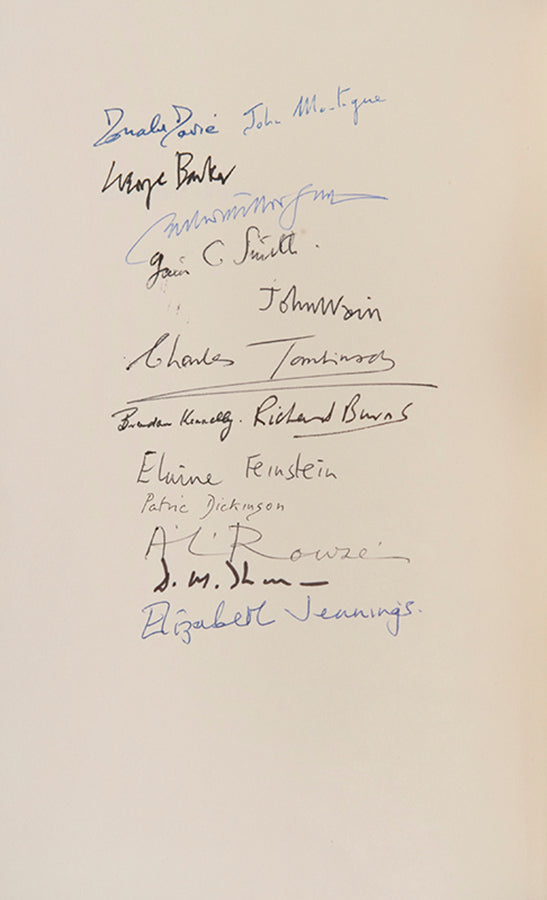 Donald Davie John Montague
George Barker
Iain C. Smith.
John Wain
Charles Tomlinson
Brendan Kennelly. Richard Burns
Elaine Feinstein
Patric Dickinson
A. L. Rowse
D. M. Thomas
Elizabeth Jennings.